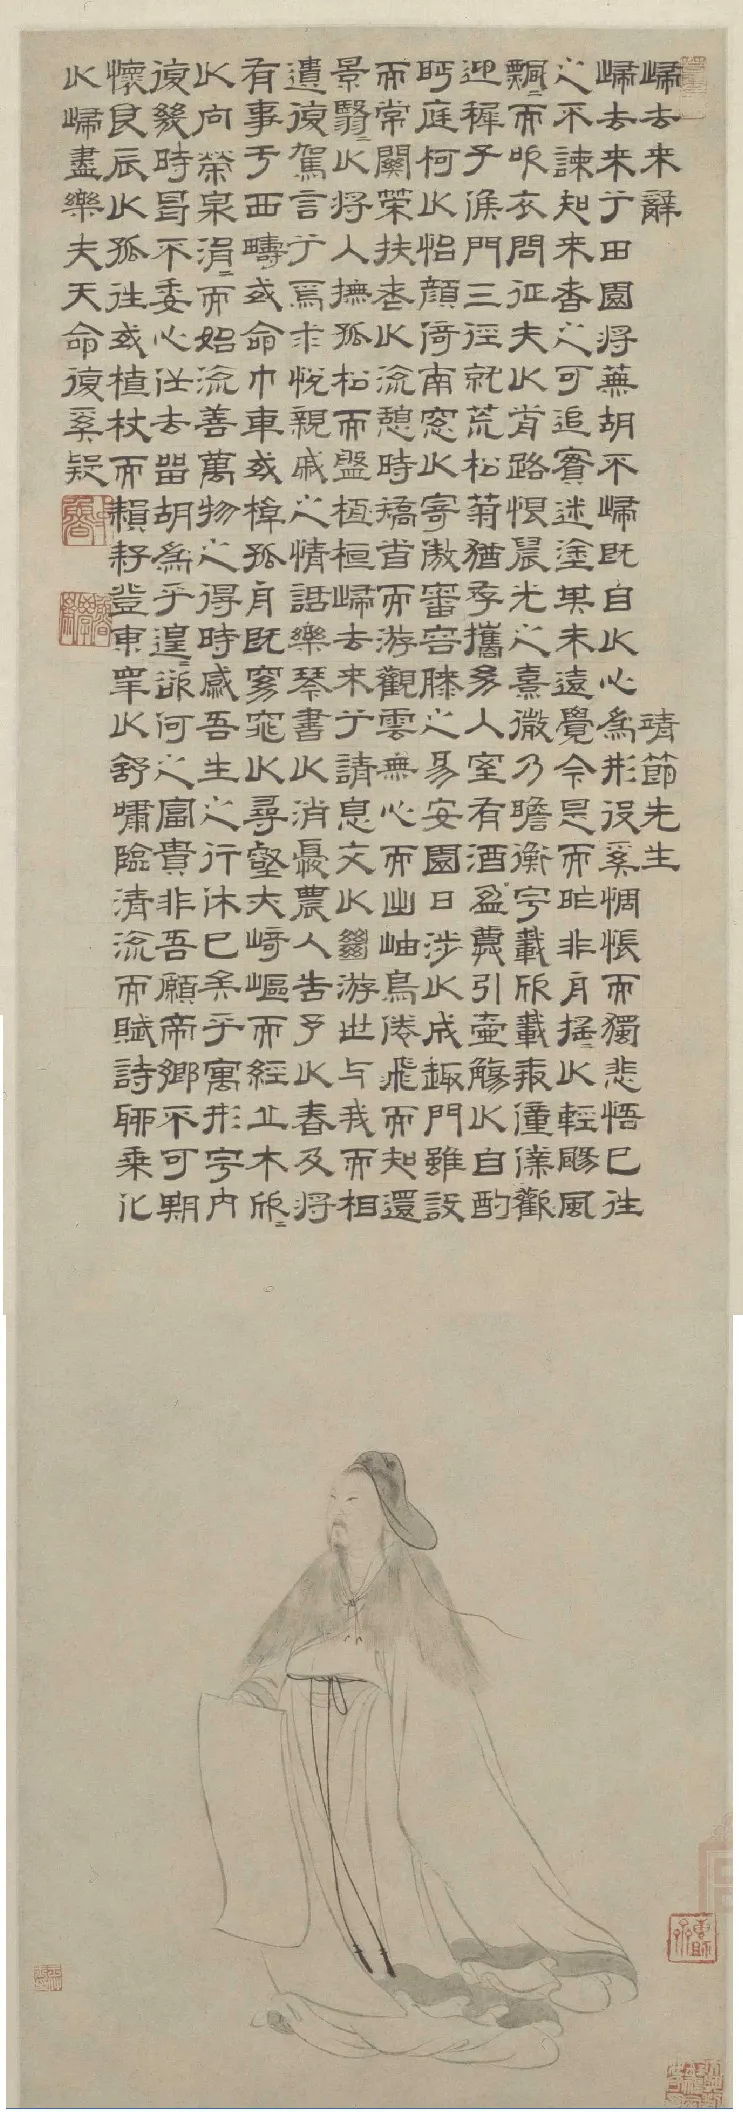 歸去来辭 靖節先生
歸去来兮田園將蕪胡不歸既自以心為形役奚惆悵而獨悲悟已往
之不諫知来者之可追實迷塗其未遠覺今是而昨非舟搖〻以輕颺風
飄〻而吹衣問征夫以前路恨晨光之熹微乃瞻衡宇載欣載奔僮僕歡
迎稺子候門三徑就荒松菊猶存攜幼入室有酒盈樽引壺觴以自酌
眄庭柯以怡顏倚南窓以寄傲審容膝之易安園日涉以成趣門雖設
而常關策扶老以流憩時矯首而游觀雲無心而出岫鳥倦飛而知還
景翳〻以將入撫孤松而盤桓桓歸去来兮請息交以絕游世与我而相
遺復駕言兮焉求悅親戚之情話樂琴書以消憂農人告予以春及將
有事于西疇或命巾車或棹孤舟既窈窕以尋壑亦崎嶇而經丘木欣〻
以向榮泉涓〻而始流善萬物之得時感吾生之行休已矣乎寓形宇内
復幾時曷不委心任去留胡為乎遑〻欲何之富貴非吾願帝鄉不可期
懷良辰以孤往或植杖而耘耔登東皋以舒嘯臨清流而賦詩聊乘化
以歸盡樂夫天命復奚疑